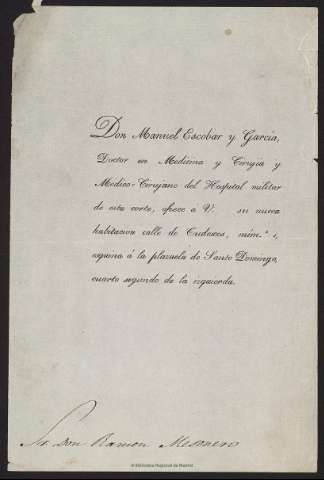 Don Manuel Escobar y Garcia,
Doctor en Medicina y Cirugia y
Medico-Cirujano del Hospital militar
de esta corte, ofrece á V. su nueva
habitacion calle de Tudescos, núm.º 1,
esquina á la plazuela de Santo Domingo,
cuarto segundo de la izquierda.
Sr. Don Ramon Mesonero
© Biblioteca Regional de Madrid